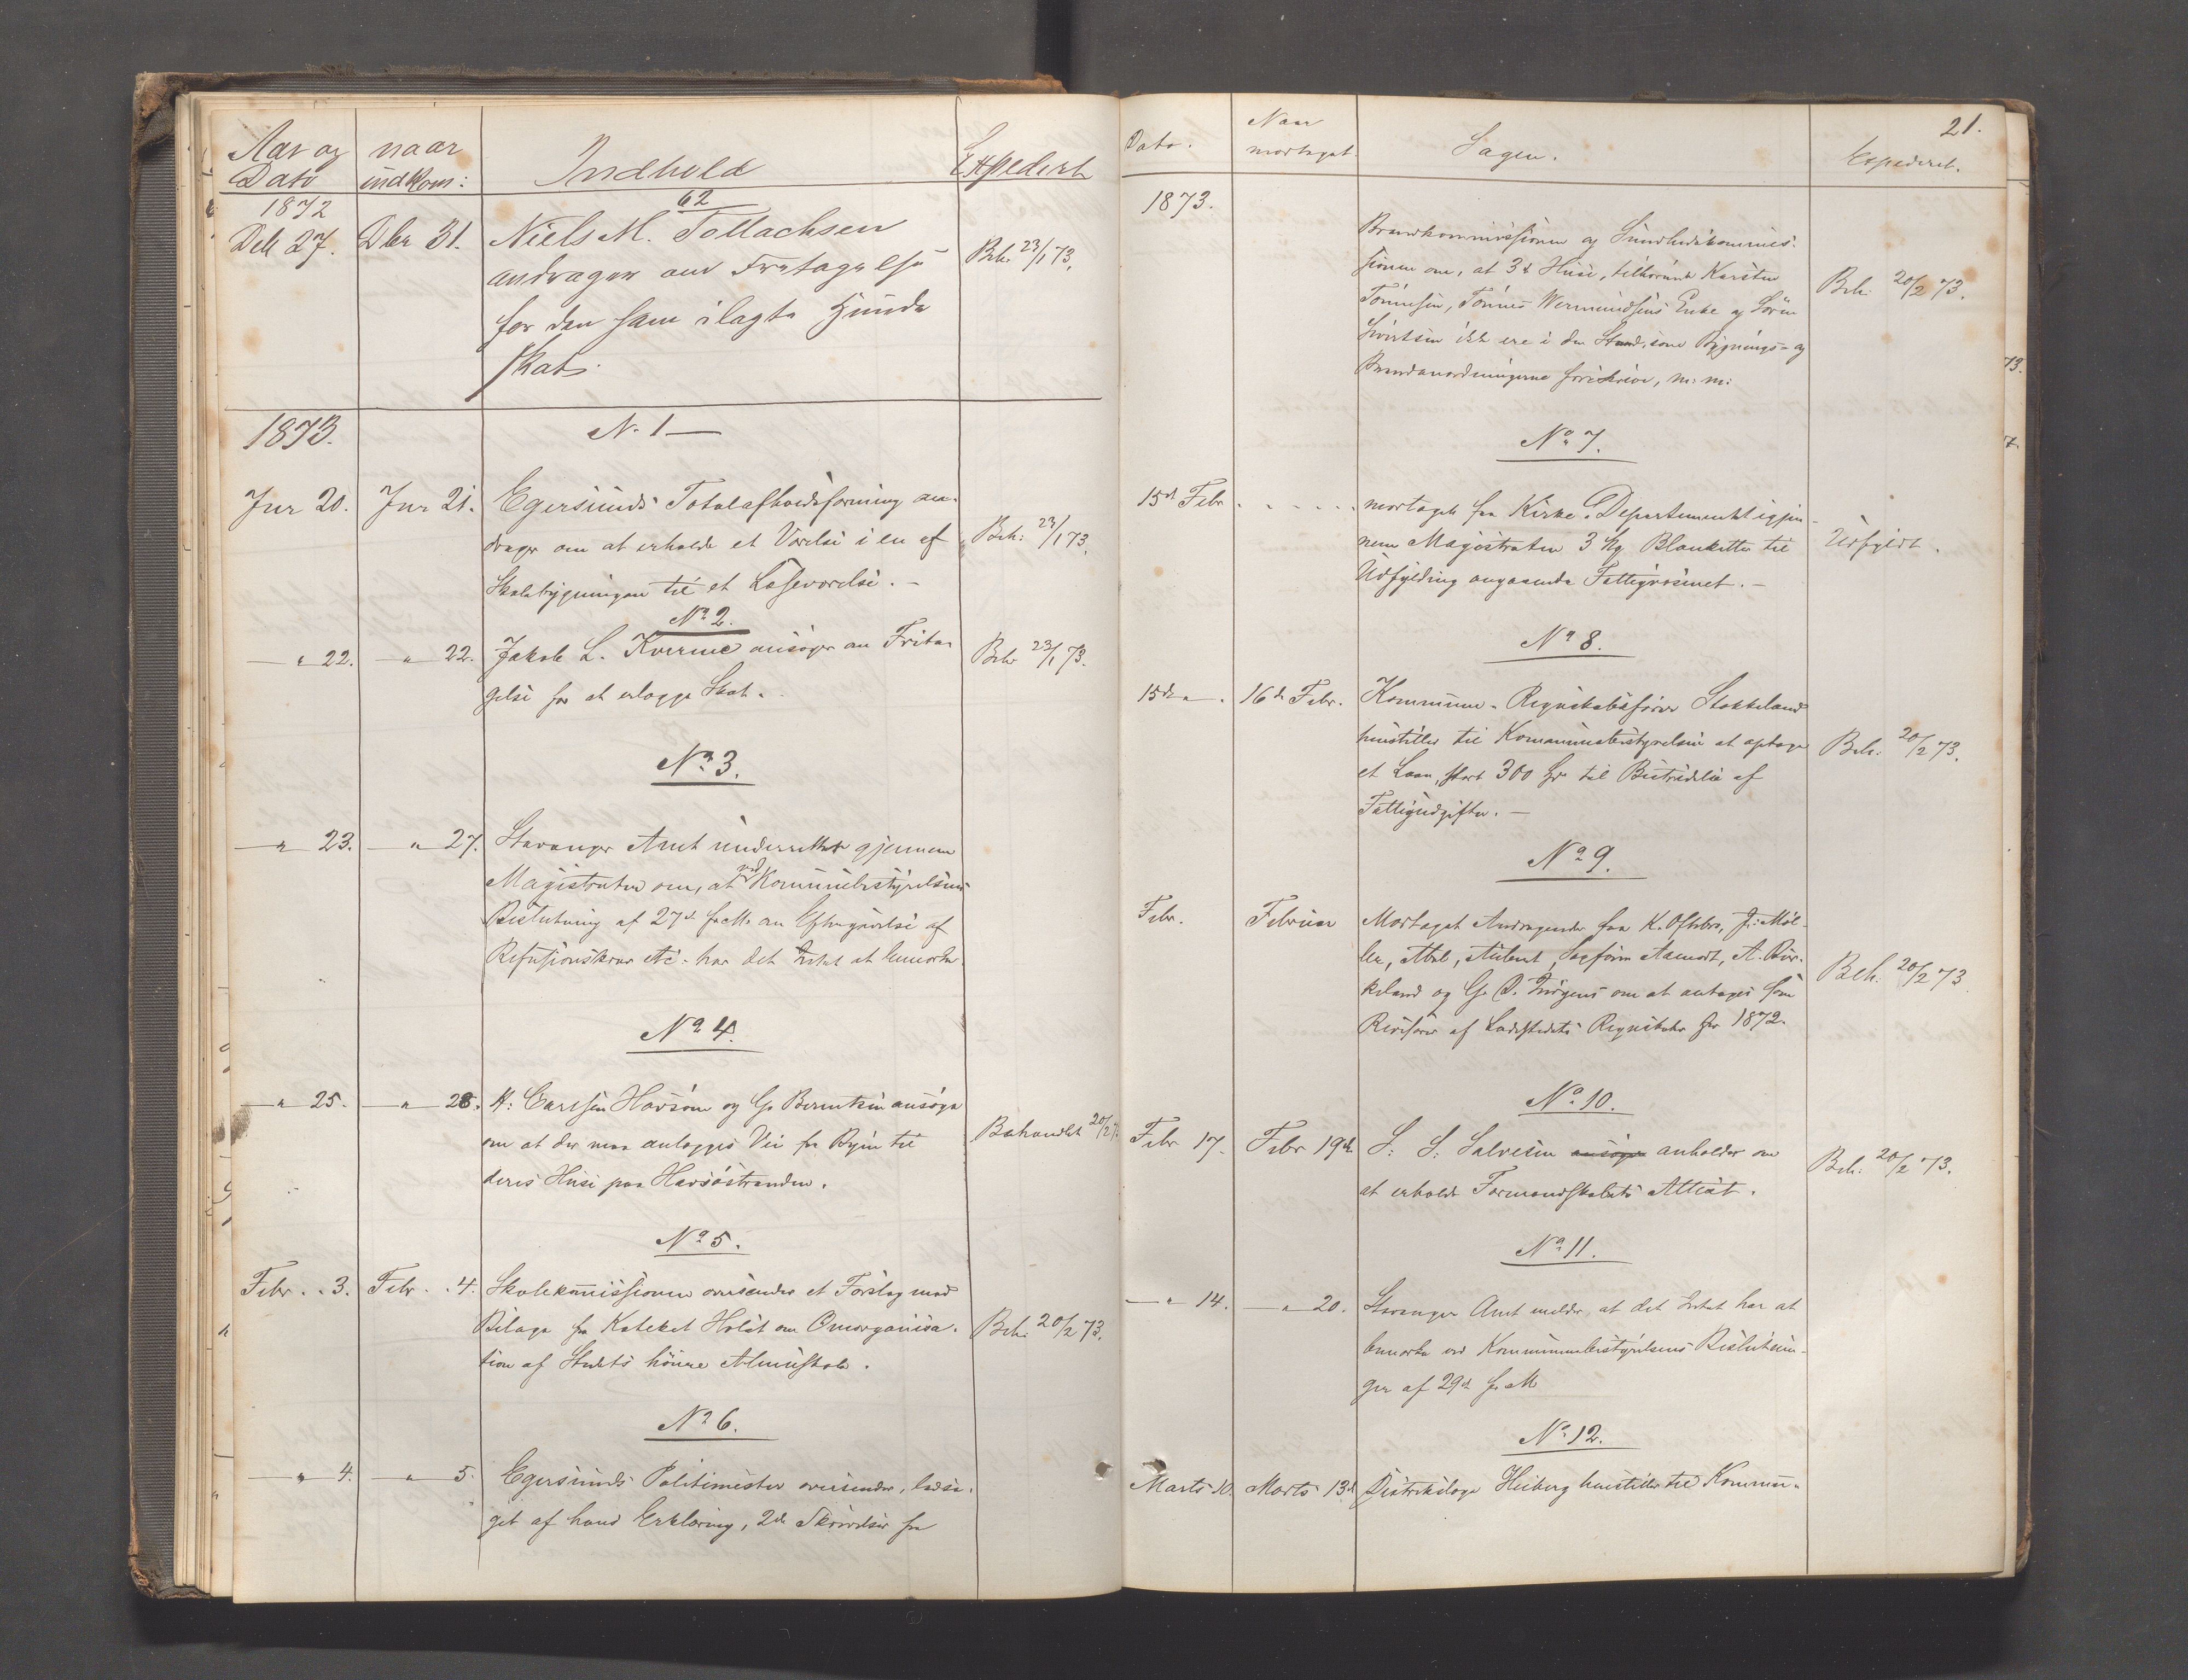 Aar og Dato
naar indkom:
Indhold
Expedert
1872
62
Deb 27. Dbr 31. Niels M. Tollachsen
andrager om Fritagelse
Beh. 23/1 73.
for den ham ilagte Hunde
skat.
1873.
N. 1
Jnr 20. Jnr 21. Egersunds Totalafholdsforening an-
drager om at erholde et Værelse i en af
Beh: 23/1 73.
Skolebygningen til et Læseværelse. —
No 2.
— " 22. — " 22. Jakob L. Kverme ansøger om Frita-
Beh 23/1 73.
gelse for at erlægge Skat.
No 3.
— " 23. — " 27. Stavanger Amt underretter gjennem
Magistraten om, at ved Kommunebestyrelsens
Beslutning af 27d f. M. om Eftergivelse af
Refusionskrav etc. har det Intet at bemærke.
No 4.
— " 25. — " 28. H: Carlsen Havsøen og G. Berentsen ansøge
om at der maa anlægges Vei fra Byen til
Behandlet 20/2 7
deres Huse paa Havsøstranden.
No 5.
Febr. . 3. Febr. . 4. Skolekommissionen oversender et Forslag med
Bilage fra Kateket Holst om Omorganisa-
Beh: 20/2 73.
tion af Stedets høiere Almueskole.
No 6.
— " 4. — " 5. Egersunds Politimester oversender, ledsa-
get af hans Erklæring, 2de Skrivelser fra
21.
Dato.
Naar modtaget
Sagen.
Expederet.
1873.
Brandkommissionen og Sundhedskommis-
sionen om, at 3de Huse, tilhørende Karsten
Beh. 20/2 73.
Tønnesen, Tønnes Wermundsens Enke og Søren
Sivertsen ikke ere i den Stand, som Bygnings- og
Brandanordningerne foreskrive, m: m:
No 7.
15de Febr. . . . . . modtaget fra Kirke Departementet igjen-
nem Magistraten 3 Stk Blanketter til
Udfyldt.
Udfylding angaaende Fattigvæsenet. —
No 8.
15de " . 16de Febr. Kommune-Regnskabsfører Stokkeland
henstiller til Kommunebestyrelsen at optage
Beh. 20/2 73.
et Laan, stort 300 Spd til Bestridelse af
Fattigudgifter. —
No 9.
Febr. Februar Modtaget Andragender fra K. Oftebro, J: Møl-
ler, Aubert, Sagfører Aamodt, A. Bir-
Beh. 20/2 73
keland og G. om at antages som
Revisorer af Ladestedets Regnskaber for 1872.
No 10.
Febr 17. Febr 19de S: S: Salvesen ansøger anholder om
Beh: 20/2 73.
at erholde Formandskabets Attest.
No 11.
— " 14. — " 20. Stavanger Amt melder, at det Intet har at
bemærke ved Kommunebestyrelsens Beslutnin-
ger af 29de f. M.
No 12.
Marts 10. Marts 13de Distriktslæge Heiberg henstiller til Kommu-